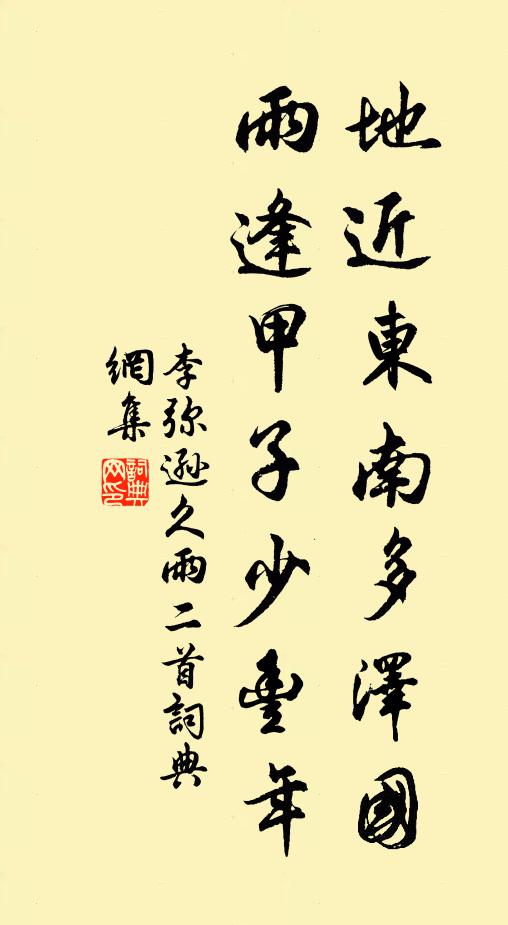 地近東南多澤國
雨逢甲子少豊年
李弥遜久雨二首詞典
網集
詞典
网印